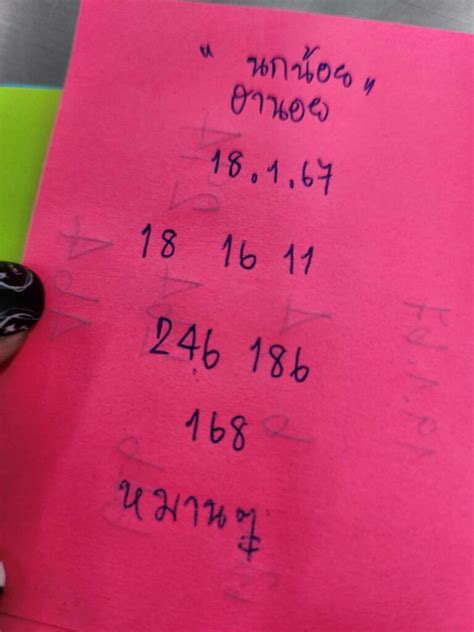 "นกน้อย"
ฮานอย
18.1.67
18 16 11
246 186
168
หมานๆ